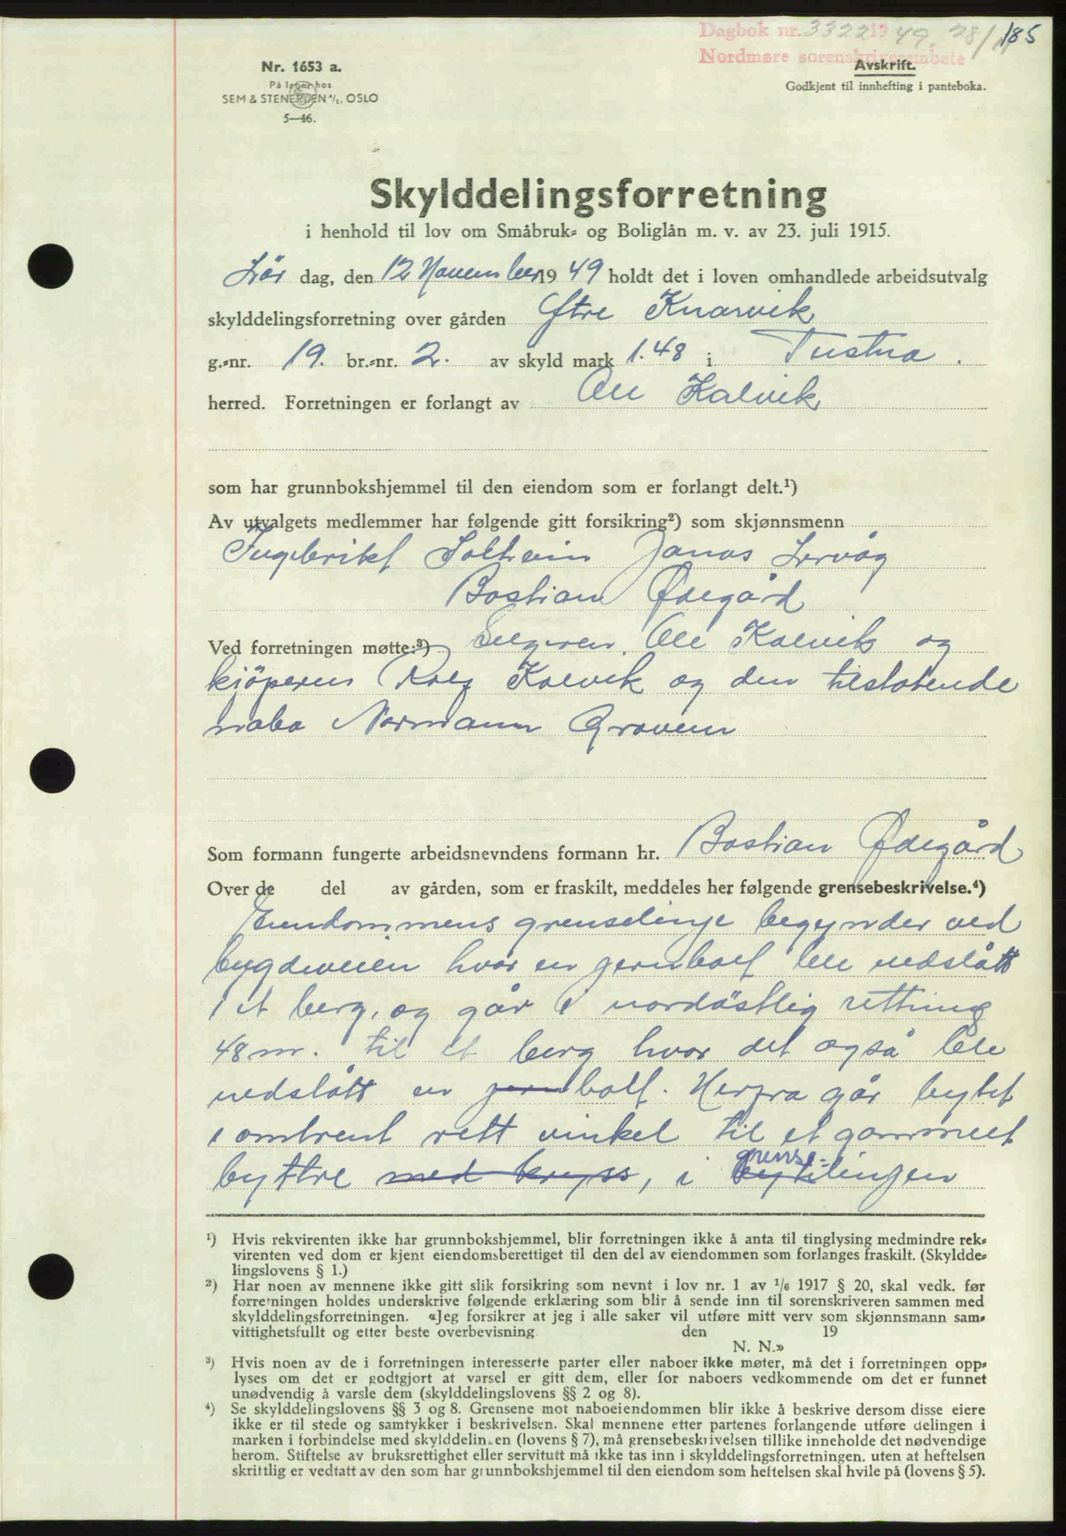 Dagbok nr. 3322 19 49, 28/11 185
Nordmøre sorenskriverembete
Nr. 1653 a.
På lager hos
SEM & STENERSEN A/S, OSLO
5—46.
Avskrift.
Godkjent til innhefting i panteboka.
Skylddelingsforretning
i henhold til lov om Småbruk- og Boliglån m. v. av 23. juli 1915.
Lör dag, den 12 November 1949 holdt det i loven omhandlede arbeidsutvalg
skylddelingsforretning over gården Ytre Knarvik
g.-nr. 19. br.-nr. 2. av skyld mark 1.48 i Tustna.
herred. Forretningen er forlangt av Ole Kalvik
som har grunnbokshjemmel til den eiendom som er forlangt delt.¹)
Av utvalgets medlemmer har følgende gitt forsikring²) som skjønnsmenn
Ingebrikt Solheim Jonas Lervåg
Bastian Ødegård
Ved forretningen møtte:³) Selgeren, Ole Kalvik og
kjöperen Kalvik og den tilstøtende
nabo Normann Graven
Som formann fungerte arbeidsnevndens formann hr. Bastian Ødegård
Over de del av gården, som er fraskilt, meddeles her følgende grensebeskrivelse.⁴)
Eiendommens grenselinje begynder ved
bygdeveien hvor en jernbolt ble nedslått
i et berg, og går i nordöstlig rettning
48 m. til et berg hvor det også ble
nedslått en jernbolt. Herfra går bytet
i omtrent rett vinkel til et gammelt
byttre med kryss, i bytelingen grense=
¹) Hvis rekvirenten ikke har grunnbokshjemmel, blir forretningen ikke å anta til tinglysing medmindre rek-
virenten ved dom er kjent eiendomsberettiget til den del av eiendommen som forlanges fraskilt. (Skyldde-
lingslovens § 1.)
²) Har noen av mennene ikke gitt slik forsikring som nevnt i lov nr. 1 av 1/6 1917 § 20, skal vedk. før
forretningen holdes underskrive følgende erklæring som blir å sende inn til sorenskriveren sammen med
skylddelingsforretningen. «Jeg forsikrer at jeg i alle saker vil utføre mitt verv som skjønnsmann sam-
vittighetsfullt og etter beste overbevisning den 19
N. N.»
³) Hvis noen av de i forretningen interesserte parter eller naboer ikke møter, må det i forretningen opp-
lyses om det er godtgjort at varsel er gitt dem, eller for naboers vedkommende om det er funnet
unødvendig å varsle dem (skylddelingslovens §§ 2 og 8).
⁴) Se skylddelingslovens §§ 3 og 8. Grensene mot naboeiendommen blir ikke å beskrive dersom disse eiere
ikke er til stede og samtykker i beskrivelsen. Skal mennene etter partenes forlangende utføre delingen i
marken i forbindelse med skylddelingen (lovens § 7), må grensebeskrivelsen tillike inneholde det nødvendige
herom. Stiftelse av bruksrettighet eller servitutt må ikke tas inn i skylddelingsforretningen. uten at heftelsen
skriftlig er vedtatt av den som har grunnbokshjemmel til den eiendom som heftelsen skal hvile på (lovens § 5).